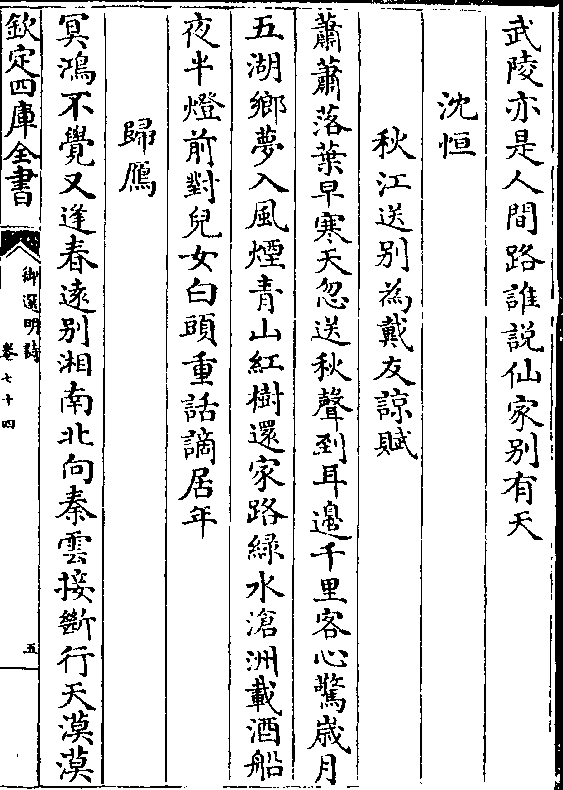 武陵亦是人間路誰説仙家别有天
沈恒
秋江送别為戴友諒賦
蕭蕭落葉早寒天忽送秋聲到耳邉千里客心驚歳月
五湖鄉夢入風煙青山紅樹還家路緑水滄洲載酒船
夜半燈前對兒女白頭重話謫居年
歸鴈
冥鴻不覺又逢春逺别湘南北向秦雲接斷行天漠漠
欽定四庫全書
御選明詩
卷七十四
五